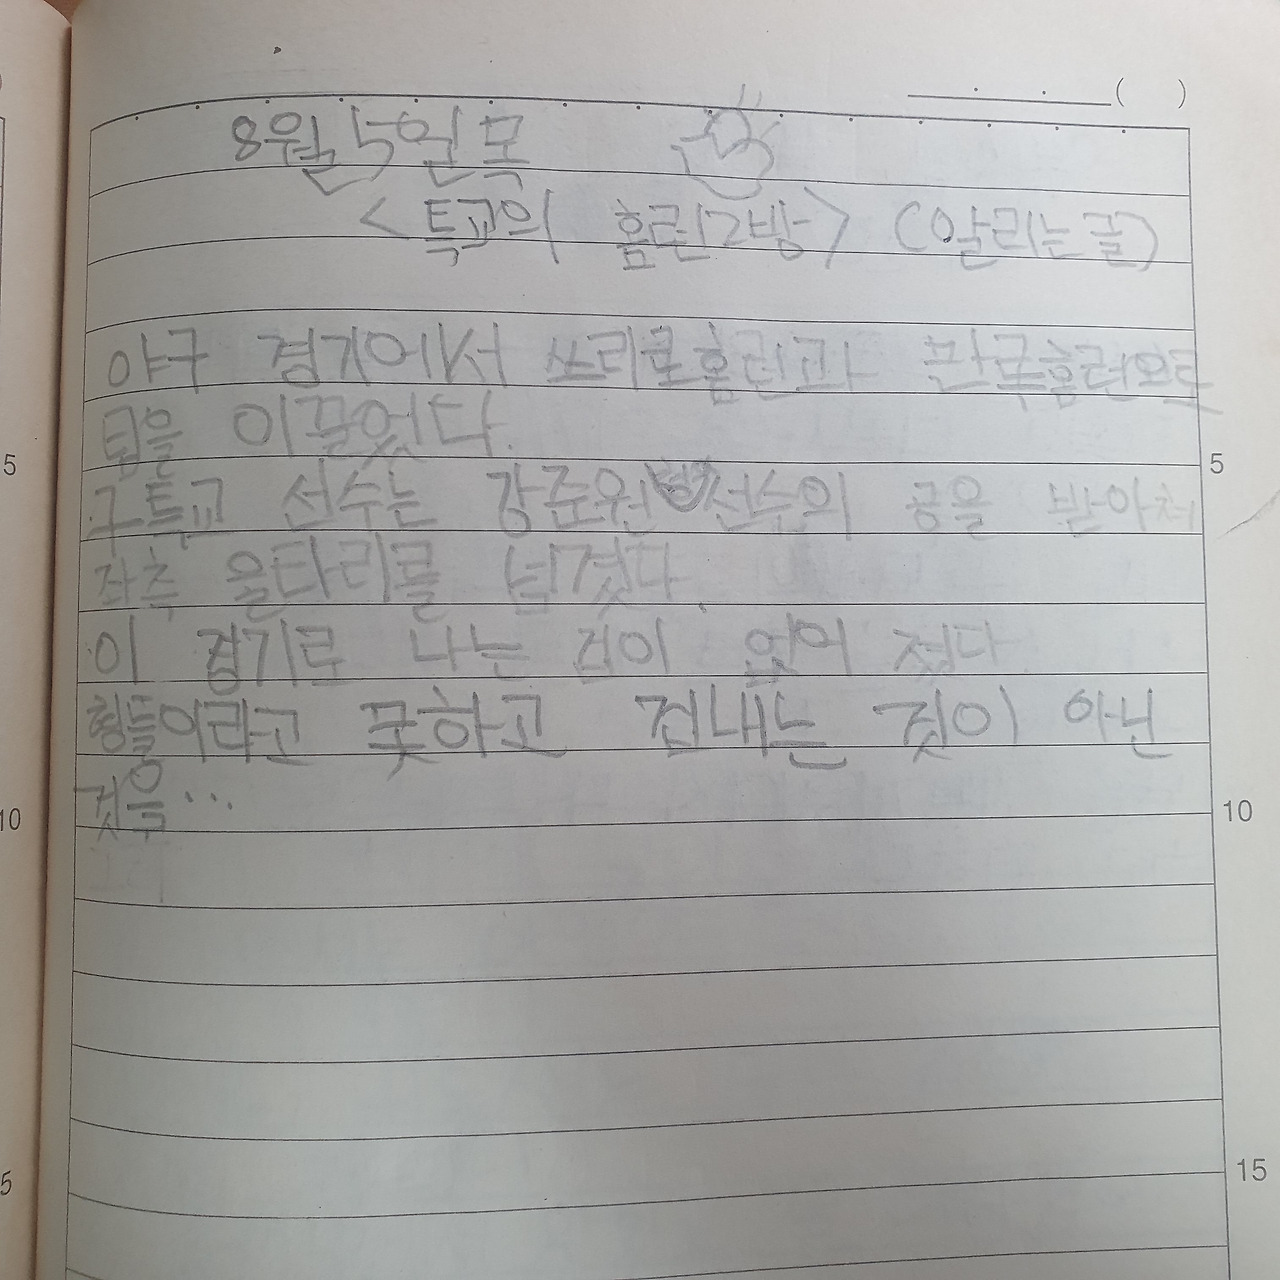 ( )
8월 5일 목
<특교의 홈런2방> (알리는 글)
야구 경기에서 쓰리로홈런과 만루홈런으로
팀을 이끌었다.
구특교 선수는 강준원 선수의 공을 받아쳐
좌측 울타리를 넘겼다.
이 경기로 나는 겁이 없어 졌다
형들이라고 못하고 겁내는 것이 아닌
것을...
5
10
15
5
10
5